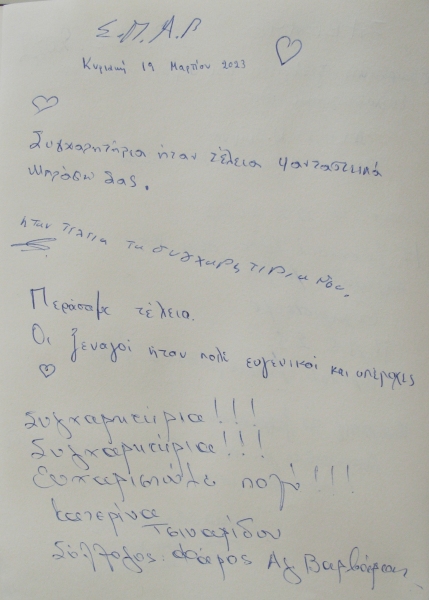 Σ.Π.Α.Ρ
Κυριακή 19 Μαρτίου 2023
Συγχαρητήρια ήταν τέλεια φανταστικά
μπράβο σας.
ήταν τελεια τα συγχαρςτιρια μου.
Περάσαμε τέλεια.
Οι ξεναγοί ήταν πολε ευγένικοί και υπέροχες
Συγχαρητύρια!!!
Συγχαρητύρια!!!
Ευχαριστούμε πολύ!!!
Κατερίνα
Τσιναχίδου
Σύλλογος Φάρος Αγ Βαρβάρας